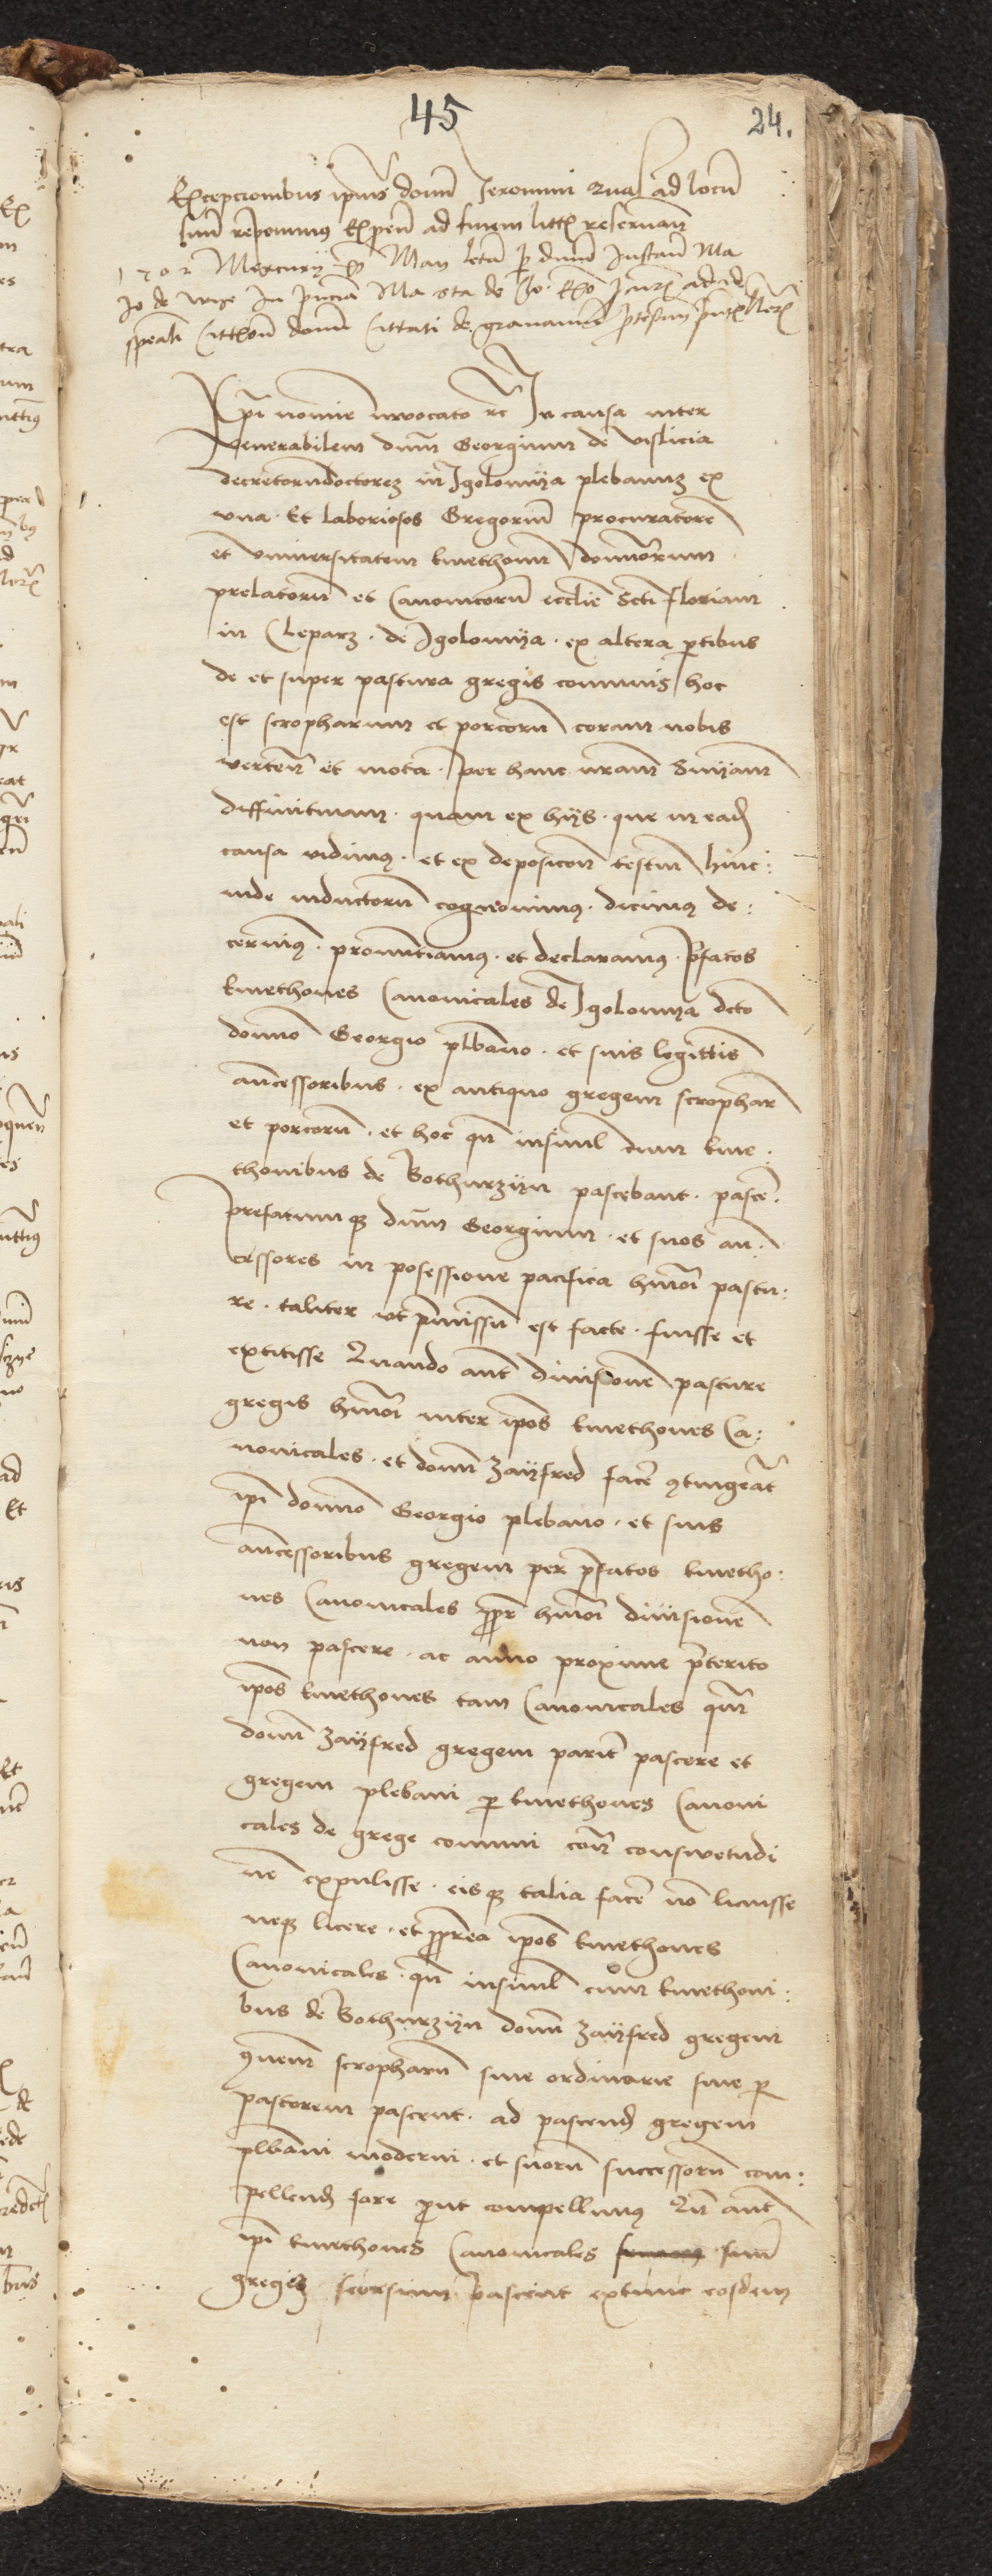 45
24.
Excepcionibus ipius domi Jeronimi ad locum
suum reponimus Expens ad finem litis reservan
1502 Mercurij Maii lecta p dnum Ma
Jo de in pncia Ma
speali domi Cittati de gravamine
Xpi nomine invocato rc In causa inter
venerabilem dnum Georgium de vislicia
decretorum doctorem in Jgolomija plebanum ex
vna. Et laboriosos Gregorium procuratorem
et vniversitatem kmethonum dominorum
prelatorum et Canonicorum ecclie Scti floriani
in Cleparz. de Jgolomija. ex altera ptibus
de et super pastura gregis communis hoc
est scropharum et porcorum coram nobis
verten et mota. per hanc nram Sniam
diffinitivam. quam ex hijs. que in eadem
causa vidimus. et ex deposicoe testium hinc:
inde inductorum cognovimus. dicimus de:
cernimus. pronuntiamus. et declaramus. pfatos
kmethones Canonicales de Jgolomija dcto
domno Georgio plbano. et suis legittis
antcessoribus. ex antiquo gregem scropharum
et porcorum. et hoc qn insimul cum kme:
thonibus de Bothurzijn pascebant. pasce.
prefatumqz dnum Georgium. et suos an:
cessores in posessione pacifica hmoi pastu:
re. taliter ut pmissum est facte. fuisse et
extitisse Quando aut divisionem pasture
gregis hmoi inter ipos kmethones Ca:
nonicales. et domi Zaijfred face contingeat
ipi domno Georgio plebano. et suis
antcessoribus gregem per pfatos kmetho:
nes Canonicales ppt hmoi divisionem
non pascere. ac anno proxime pterito
ipos kmethones tam Canonicales qm
domi Zaijfred gregem parit pascere et
gregem plebani p kmethones Canoni
cales de grege communi cont conswetudi
nem expulisse. eisqz talia face no licuisse
neqz licere. et pptrea ipos kmethones
Canonicales. qn insimul cum kmethoni:
bus de Bothurzijn domi Zaijfred gregem
scropharum sive ordinarie sive p
pastorem pascent. ad pascend gregem
plbani moderni. et suorum successorum com:
pellend fore put compellimus Qn aut
ipi kmethones Canonicales suum
gregem seorsum pascent extunc eosdem